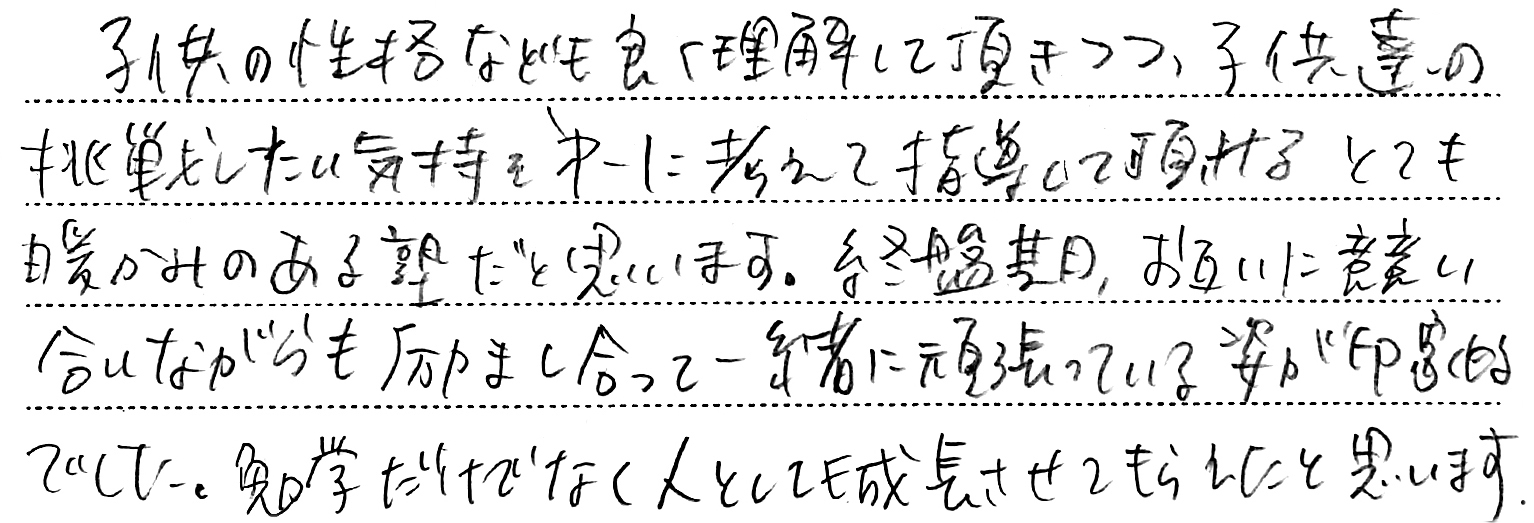 子供の性格なども良く理解して頂きつつ、子供達の
挑戦したい気持を第一に考えて指導して頂ける とても
暖かみのある塾だと思います。終盤期、お互いに競い
合いながらも励まし合って一緒に頑張っている姿が印象的
でした。勉学だけでなく人としても成長させてもらえたと思います.